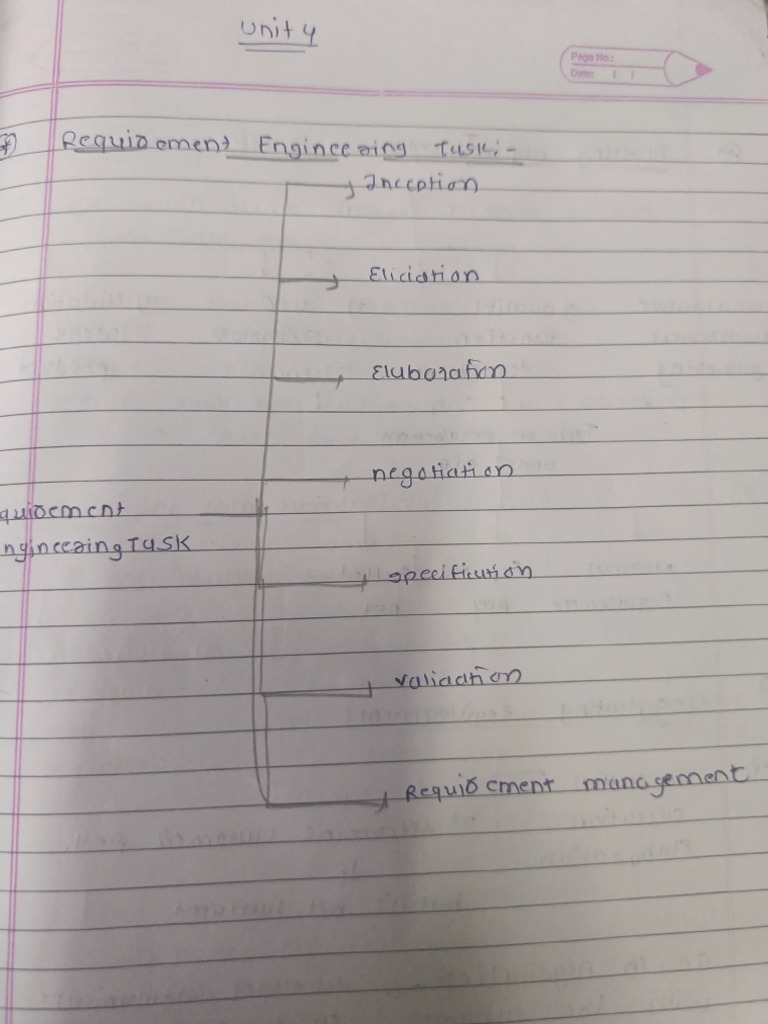 Unit 4
Page No.:
Date:
Requirement Engineering Task:-
Inception
Eliciation
Elaboration
negotiation
quirement
ngineering Task
specification
validation
Requirement management